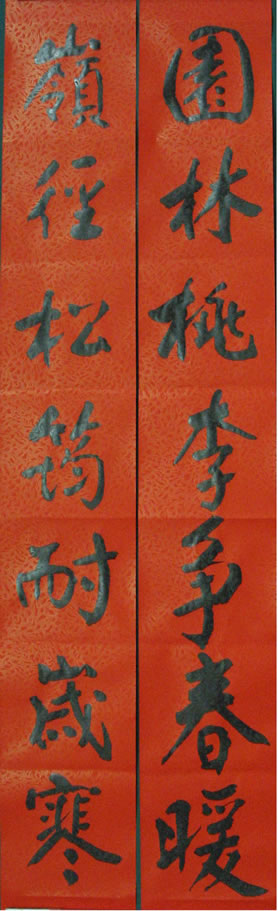 園林桃李爭春暖
嶺徑松筠耐歲寒